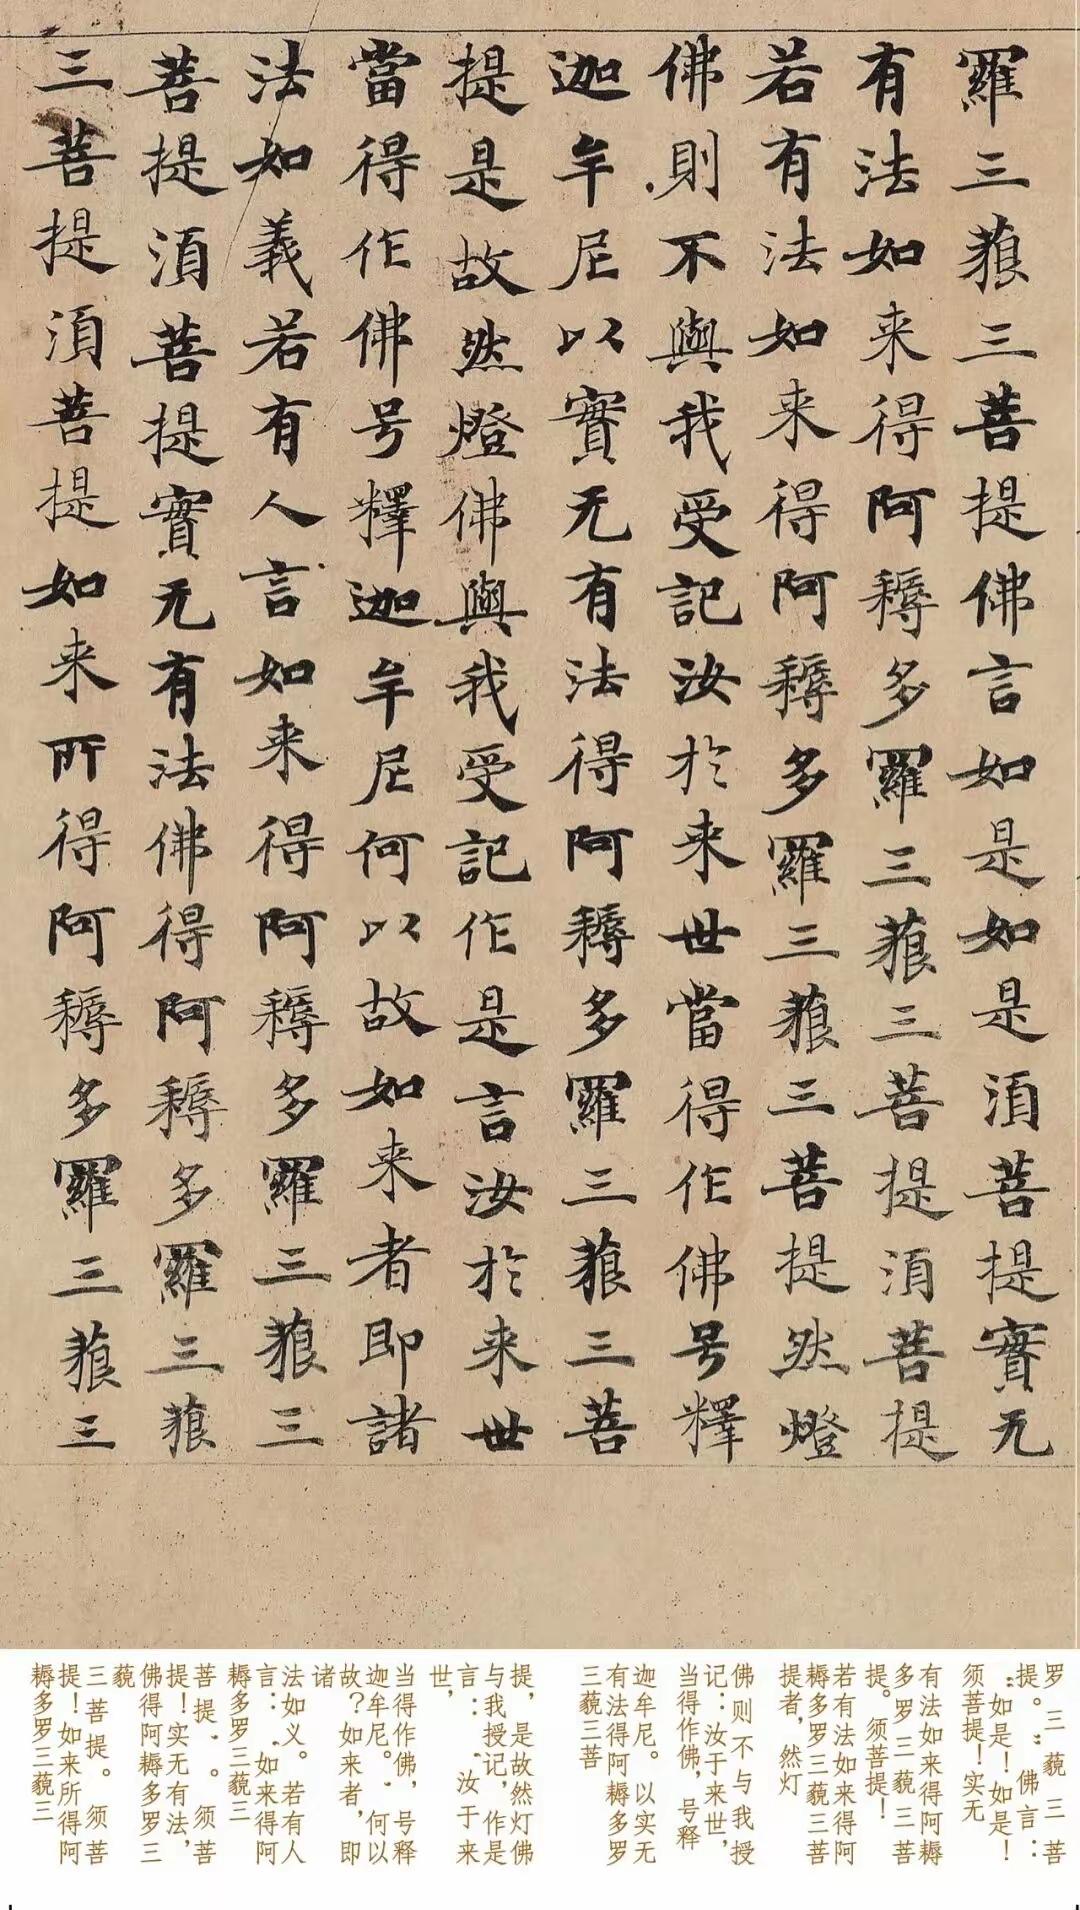 羅三藐三菩提佛言如是如是湏菩提實无
有法如来得阿耨多羅三藐三菩提湏菩提
若有法如来得阿耨多羅三藐三菩提然燈
佛則不與我受記汝於来世當得作佛号釋
迦牟尼以實无有法得阿耨多羅三藐三菩
提是故然燈佛與我受記作是言汝於来世
當得作佛号釋迦牟尼何以故如来者即諸
法如義若有人言如来得阿耨多羅三藐三
菩提湏菩提實无有法佛得阿耨多羅三藐
三菩提湏菩提如来所得阿耨多羅三藐三
罗三藐三菩
提。”佛言：
“如是！如是！
须菩提！实无
有法如来得阿耨
多罗三藐三菩
提。须菩提！
若有法如来得阿
耨多罗三藐三菩
提者，然灯
佛则不与我授
记：汝于来世，
当得作佛，号释
迦牟尼。以实无
有法得阿耨多罗
三藐三菩
提，是故然灯佛
与我授记，作是
言：‘汝于来
世，
当得作佛，号释
迦牟尼。’何以
故？如来者，即
诸
法如义。若有人
言：‘如来得阿
耨多罗三藐三
菩提’。须菩
提！实无有法，
佛得阿耨多罗三
藐
三菩提。须菩
提！如来所得阿
耨多罗三藐三